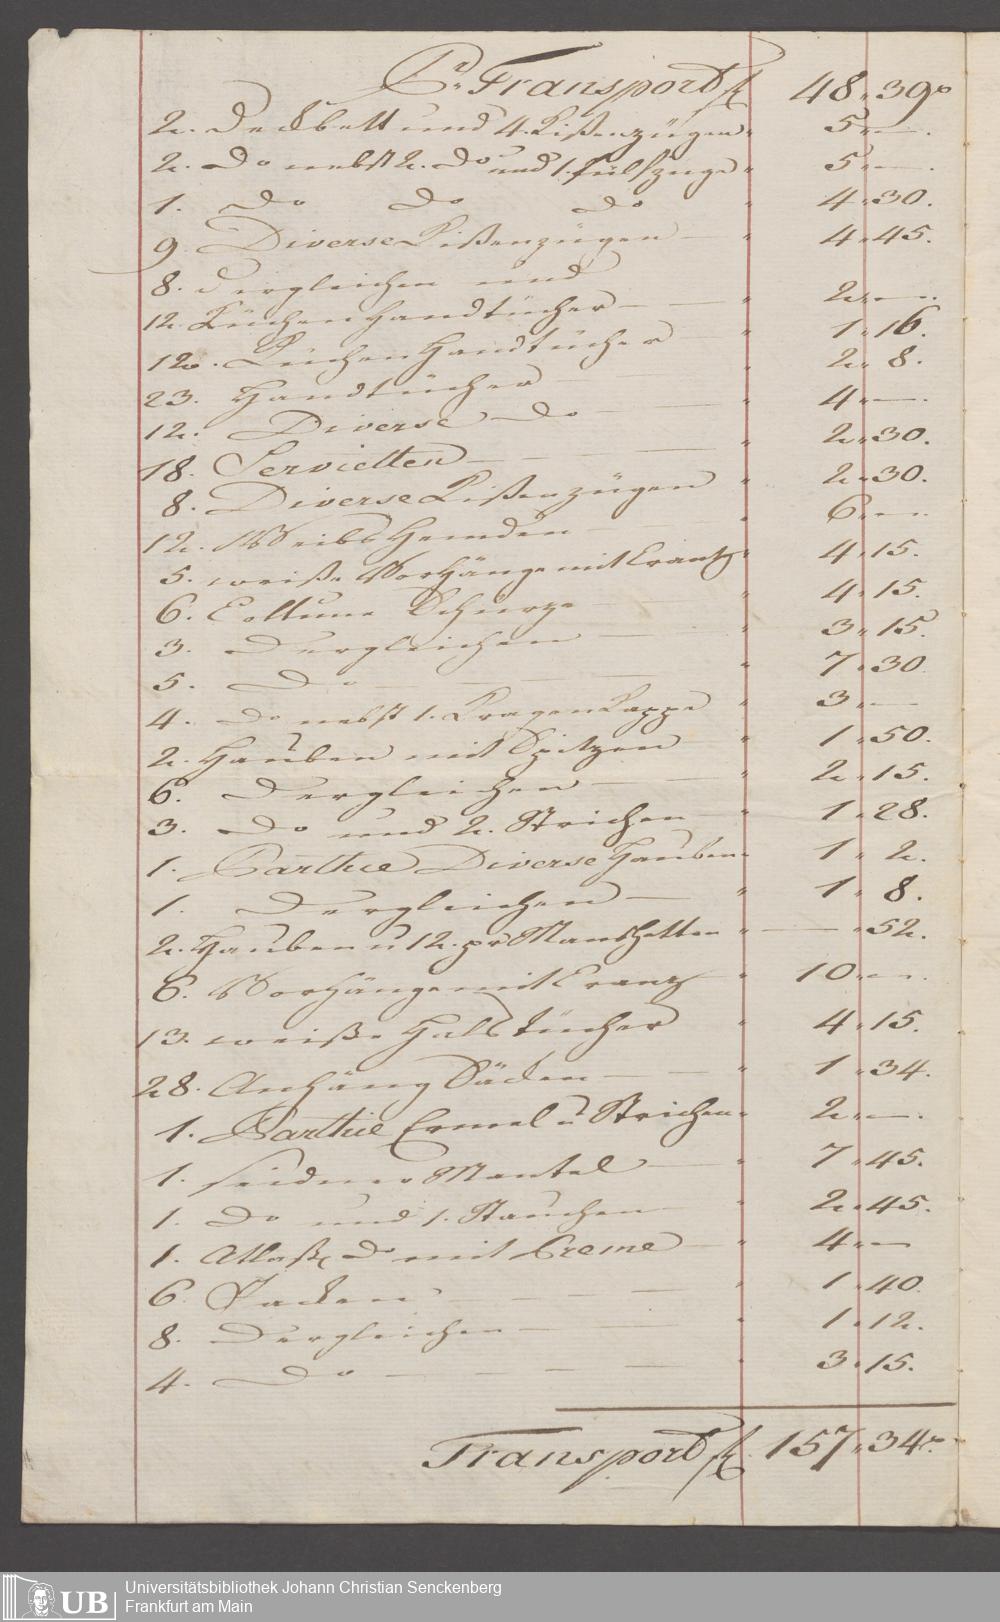 Pr. Transport f 48 " 39
2. Deckbett und 4. Kißenzügen " 5 " —.
2. Do nebst 2. Do und 1. Pülfzüge " 5 " —.
1. Do Do Do " 4 " 30.
9. Diverse Kißenzügen — " 4 " 45.
8. dergleichen und
12. Küchen Handtücher — — " 2 " —.
12. Küchen Handtücher — " 1 " 16.
23. Handtücher — " 2 " 8.
12. Diverse Do — — " 4 " —.
18. Servietten — — — " 2 " 30.
8. Diverse Kißenzügen " 2 " 30.
12. Weibs Hemden — — " 6 " —.
5. weiße Vorhänge mit Krantz " 4 " 15.
6. Cottune Schurze — " 4 " 15.
3. Dergleichen — — " 3 " 15.
5. Do — — — " 7 " 30.
4. Do nebst 1. Kragen Kappe " 3 " —
2. Hauben mit Spitzen — " 1 " 50.
6. Dergleichen — — " 2 " 15.
3. Do und 2. Strichen — " 1 " 28.
1. Parthie Diverse Hauben " 1 " 2.
1. Dergleichen — " 1 " 8.
2. Hauben u 12. pr Manshetten " — " 52.
6. Vorhänge mit Cranz — " 10 " —.
13. weiße Halstücher " 4 " 15.
28. Anhäng Säcken — — " 1 " 34.
1. Parthie Ermel u Strichen " 2 " —.
1. seidner Mantel — " 7 " 45.
1. Do und 1. Stauchen — " 2 " 45.
1. Atlaß Do mit Breme — " 4 " —
6. Jacken — — — " 1 " 40.
8. Dergleichen — — " 1 " 12.
4. Do — — — — " 3 " 15.
Transport f 157 " 34
UB
Universitätsbibliothek Johann Christian Senckenberg
Frankfurt am Main